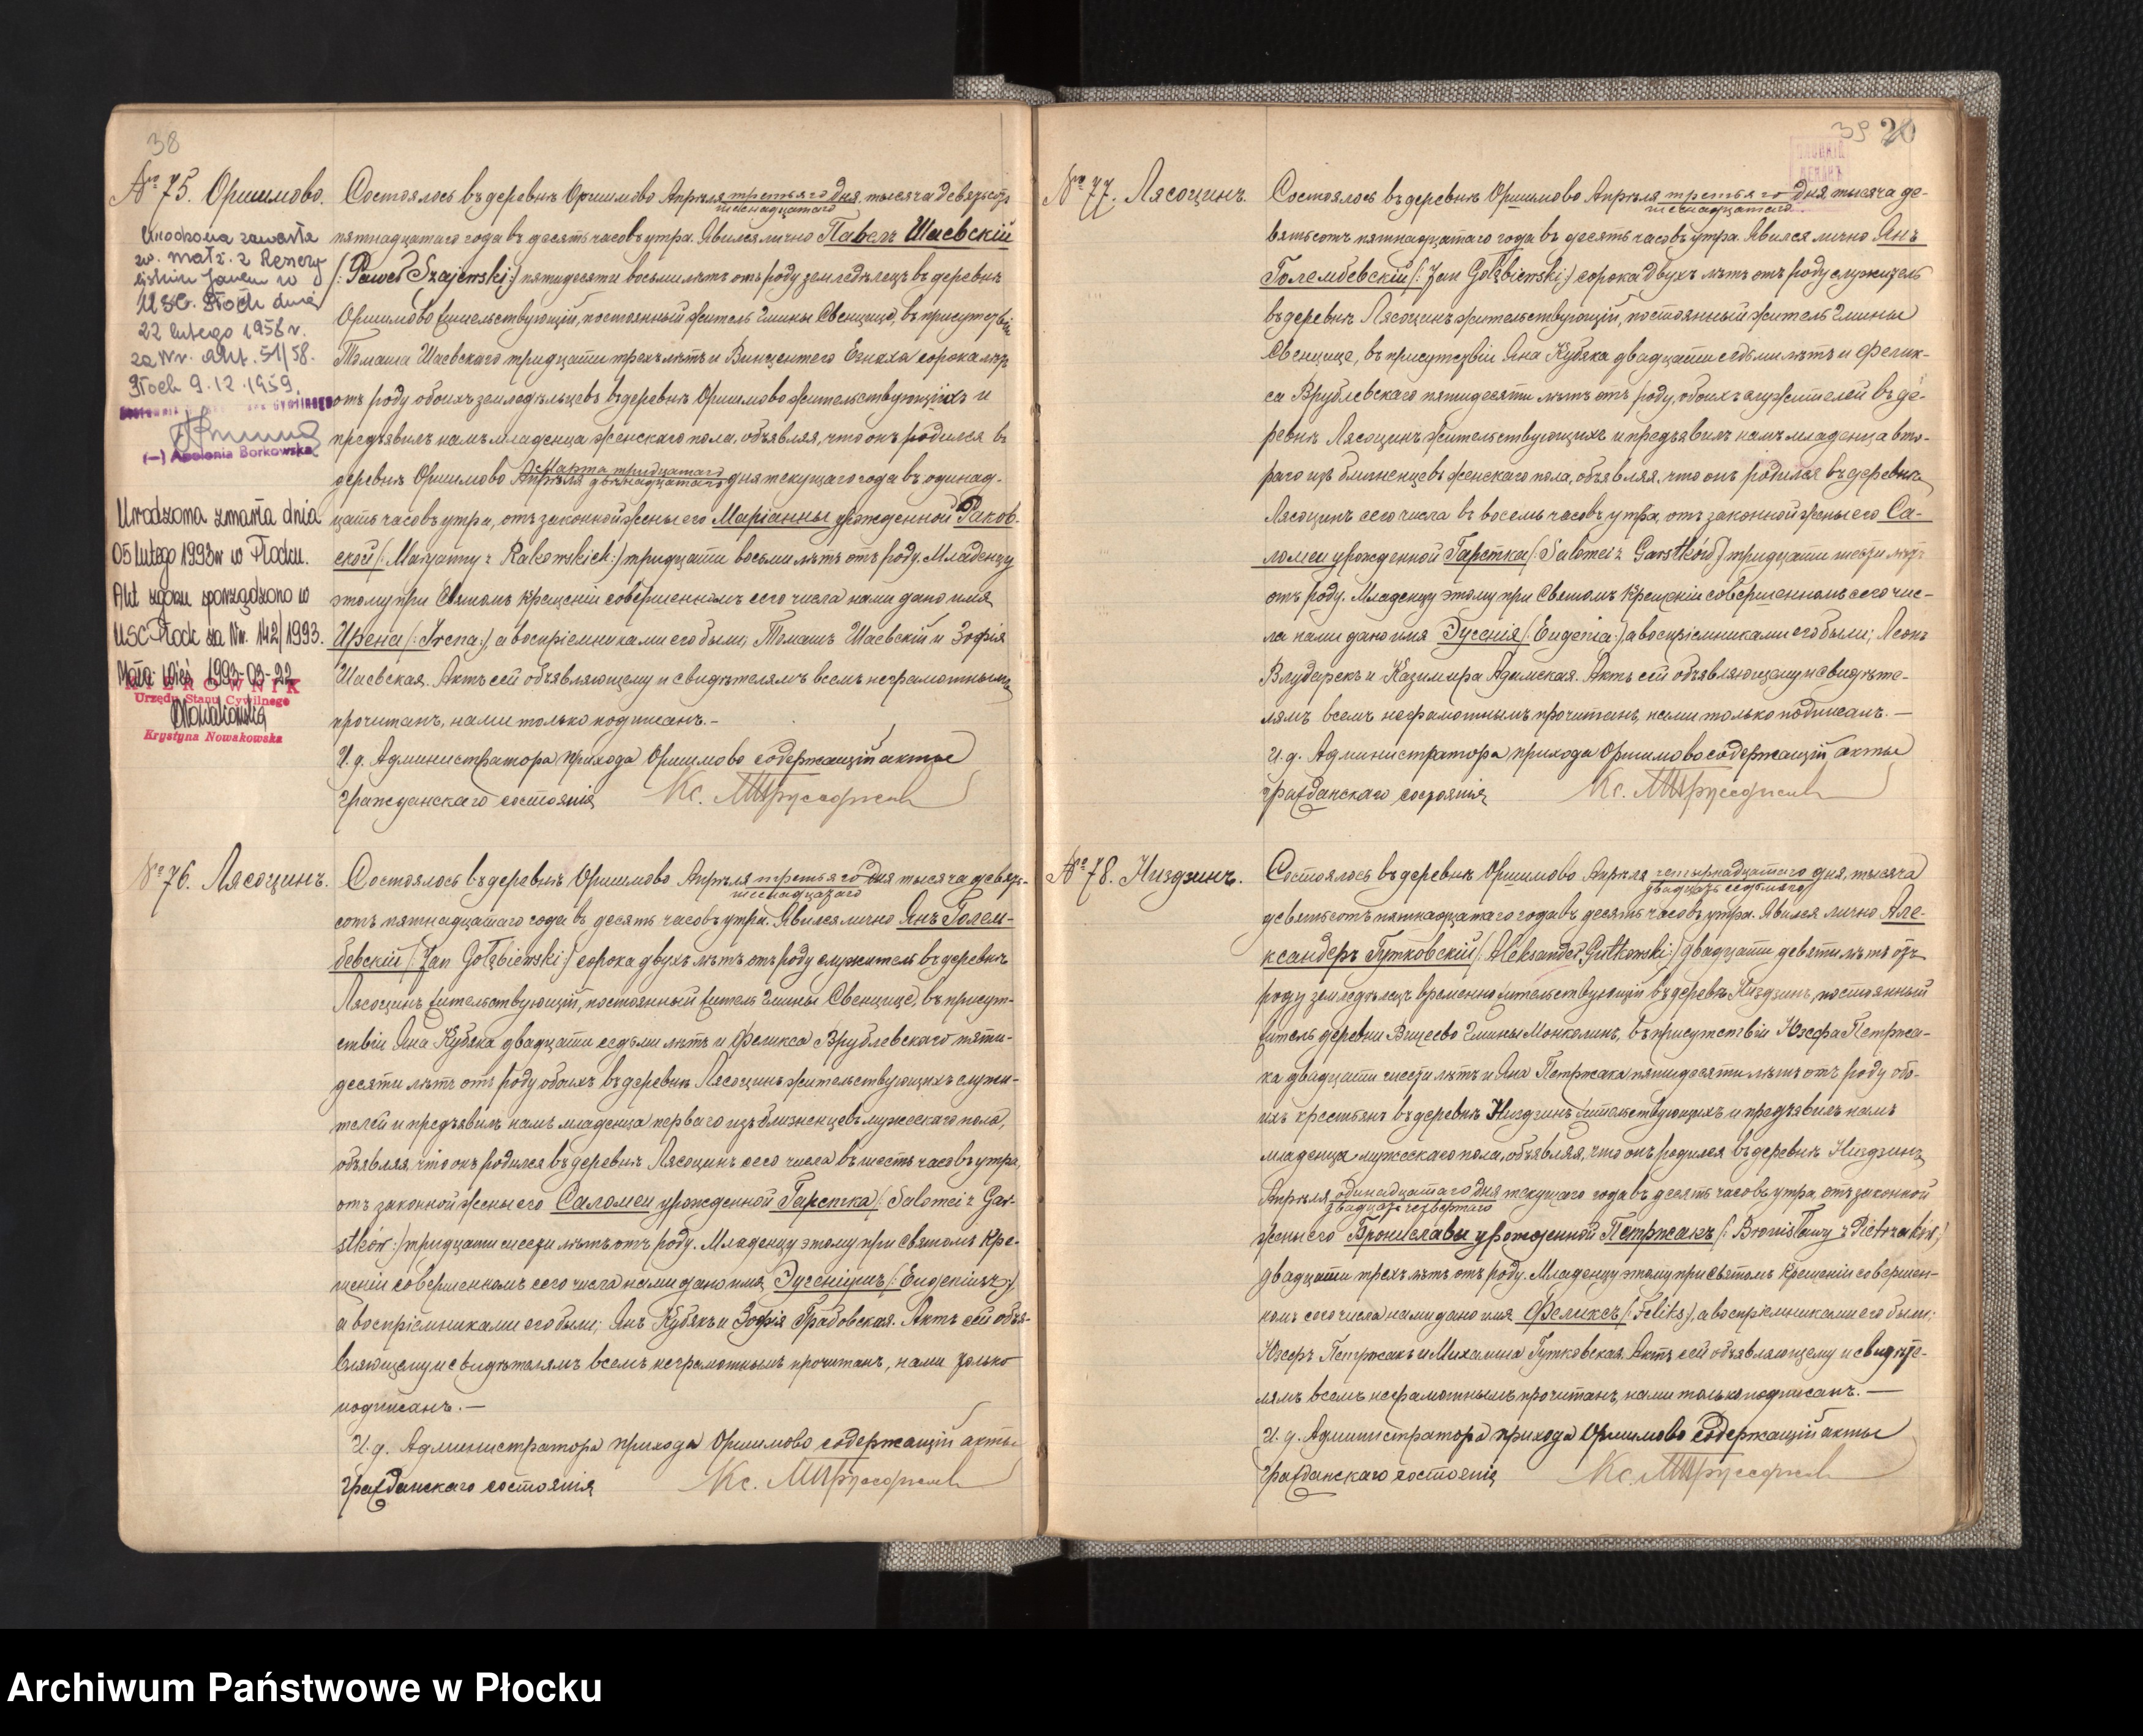 38
№ 75. Оршимово.
Urodzona zawarła
zw. małż. z
Janem w
USC. Płock dnia
22 lutego 1958 r.
za Nr. akt. 51/58.
Płock 9.12.1959.
(—) Apolonia Borkowska
Urodzona zmarła dnia
05 lutego 1993r w Płocku.
Akt zgonu sporządzono w
USC Płock za Nr. 142/1993.
Mała Wieś 1993-03-22
KIEROWNIK
Urzędu Stanu Cywilnego
Krystyna Nowakowska
Состоялось въ деревнѣ Оршимово Апрѣля третьяго дня тысяча девятьсотъ
шестнадцатаго
пятнадцатаго года въ десять часовъ утра. Явился лично Павелъ Шаевскій
(: Paweł Szajewski :) пятидесяти восьми лѣтъ отъ роду земледѣлецъ въ деревнѣ
Оршимово жительствующій, постоянный житель гмины Свенцице, въ присутствіи
Томаша Шаевскаго тридцати трехъ лѣтъ и Винцентего сорока лѣтъ
отъ роду обоихъ земледѣльцевъ въ деревнѣ Оршимово жительствующихъ и
предъявилъ намъ младенца женскаго пола, объявляя, что онъ родился въ
Марта тридцатаго
деревнѣ Оршимово Апрѣля двѣнадцатаго дня текущаго года въ одинад-
цать часовъ утра, отъ законной жены его Маріанны урожденной Раков-
ской (: Maryanny z Rakowskich :) тридцати восьми лѣтъ отъ роду. Младенцу
этому при Святомъ Крещеніи совершенномъ сего числа нами дано имя
Ирена (: Irena :), а воспріемниками его были; Томашъ Шаевскій и Зофія
Шаевская. Актъ сей объявляющему и свидѣтелямъ всемъ неграмотнымъ
прочитанъ, нами только подписанъ. —
И. д. Администратора прихода Оршимово содержащій акты
гражданскаго состоянія Кс.
№ 76. Лясоцинъ.
Состоялось въ деревнѣ Оршимово Апрѣля третьяго дня тысяча девять-
шестнадцатаго
сотъ пятнадцатаго года въ десять часовъ утра. Явился лично Янъ Голем-
бевскій (: Jan Gołębiewski :) сорока двухъ лѣтъ отъ роду служитель въ деревнѣ
Лясоцинъ жительствующій, постоянный житель гмины Свенцице, въ присут-
ствіи Яна Кубяка двадцати седьми лѣтъ и Феликса Врублевскаго пяти-
десяти лѣтъ отъ роду обоихъ въ деревнѣ Лясоцинъ жительствующихъ служи-
телей и предъявилъ намъ младенца перваго изъ близненцевъ мужескаго пола,
объявляя, что онъ родился въ деревнѣ Лясоцинъ сего числа въ шесть часовъ утра,
отъ законной жены его Саломеи урожденной Гарстка (: Salomei z Gar-
stków :) тридцати шести лѣтъ отъ роду. Младенцу этому при Святомъ Кре-
щеніи совершенномъ сего числа нами дано имя Эугеніушъ (: Eugeniusz :)
а воспріемниками его были; Янъ Кубякъ и Зофія Грабовская. Актъ сей объя-
вляющему и свидѣтелямъ всемъ неграмотнымъ прочитанъ, нами только
подписанъ. —
И. д. Администратора прихода Оршимово содержащій акты
гражданскаго состоянія Кс.
39 20
№ 77. Лясоцинъ.
Состоялось въ деревнѣ Оршимово Апрѣля третьяго дня тысяча де-
шестнадцатаго
вятьсотъ пятнадцатаго года въ десять часовъ утра. Явился лично Янъ
Голембевскій (: Jan Gołębiewski :) сорока двухъ лѣтъ отъ роду служитель
въ деревнѣ Лясоцинъ жительствующій, постоянный житель гмины
Свенцице, въ присутствіи Яна Кубяка двадцати седьми лѣтъ и Фелик-
са Врублевскаго пятидесяти лѣтъ отъ роду, обоихъ служителей въ де-
ревнѣ Лясоцинъ жительствующихъ и предъявилъ намъ младенца вто-
раго изъ близненцевъ женскаго пола, объявляя, что онъ родился въ деревнѣ
Лясоцинъ сего числа въ восемь часовъ утра, отъ законной жены его Са-
ломеи урожденной Гарстка (: Salomei z Garstków :) тридцати шести лѣтъ
отъ роду. Младенцу этому при Святомъ Крещеніи совершенномъ сего чис-
ла нами дано имя Эугенія (: Eugenia :) а воспріемниками его были; Леонъ
Влударскъ и Казимира Адамская. Актъ сей объявляющему и свидѣте-
лямъ всемъ неграмотнымъ прочитанъ, нами только подписанъ. —
И. д. Администратора прихода Оршимово содержащій акты
гражданскаго состоянія Кс.
№ 78. Низдзинъ.
Состоялось въ деревнѣ Оршимово Апрѣля четырнадцатаго дня, тысяча
двадцать седьмаго
девятьсотъ пятнадцатаго года въ десять часовъ утра. Явился лично Але-
ксандеръ Гутковскій (: Aleksander Gutkowski :) двадцати девяти лѣтъ отъ
роду земледѣлецъ временно жительствующій въ деревнѣ Низдзинъ, постоянный
житель деревни гмины Монколинъ, въ присутствіи Юзефа Петржа-
ка двадцати шести лѣтъ и Яна Петржака пятидесяти лѣтъ отъ роду обо-
ихъ крестьянъ въ деревнѣ Низдзинъ жительствующихъ и предъявилъ намъ
младенца мужескаго пола, объявляя, что онъ родился въ деревнѣ Низдзинъ
Апрѣля одинадцатаго дня текущаго года въ десять часовъ утра, отъ законной
двадцать четвертаго
жены его Брониславы урожденной Петржакъ (: Bronisławy z Pietrzaków :)
двадцати трехъ лѣтъ отъ роду. Младенцу этому при Святомъ Крещеніи совершен-
номъ сего числа нами дано имя Феликсъ (: Feliks :), а воспріемниками его были;
Юзефъ Петржакъ и Михалина Гутковская. Актъ сей объявляющему и свидѣте-
лямъ всемъ неграмотнымъ прочитанъ, нами только подписанъ. —
И. д. Администратора прихода Оршимово содержащій акты
гражданскаго состоянія Кс.
Archiwum Państwowe w Płocku